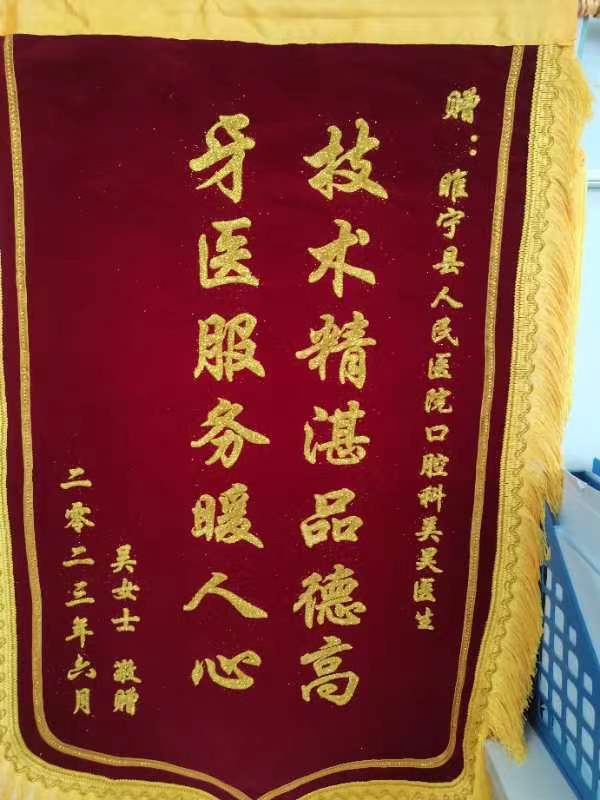 赠：睢宁县人民医院口腔科吴昊医生
技术精湛品德高
牙医服务暖人心
吴女士 敬赠
二零二三年六月